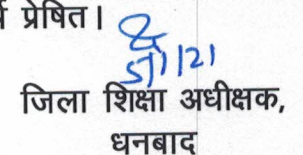 प्रेषित।
जिला शिक्षा अधीक्षक,
धनबाद